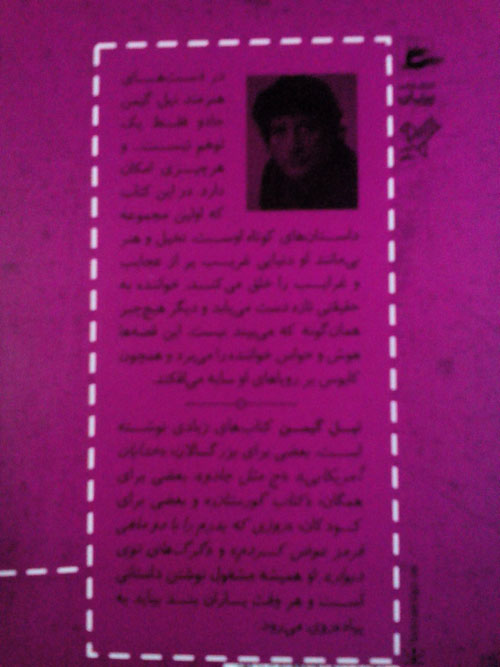 در دست‌هـــای
هنرمند نیل گیمن
جادو فقـــط یک
توهم نیســـت و
هرچیـــزی امکان
دارد. در این کتاب
که اولین مجموعه
داســـتان‌های کوتاه اوســـت، تخیل و هنر
بی‌مانند او دنیایی غریـــب پر از عجایب
و غرایـــب را خلق می‌کنـــد. خواننده به
حقیقتی تازه دست می‌یابد و دیگر هیچ‌چیز
همان‌گونه که می‌بیند نیست. این قصه‌ها
هوش و حواس خواننده را می‌برد و همچون
کابوس بر رویاهای او سایه می‌افکند.
نیـــل گیمـــن کتاب‌های زیادی نوشـــته
اســـت. بعضی برای بزرگســـالان، «خدایان
آمریکایی»، «ج مثل جادو»، بعضی برای
همگان، «کتاب گورستان» و بعضی برای
کـــودکان، «روزی که پدرم را با دو ماهی
قرمز عوض کـــردم» و «گرگ‌های توی
دیوار». او همیشه مشغول نوشتن داستانی
اســـت و هر وقت بـــاران بنـــد بیاید به
پیاده‌روی می‌رود.